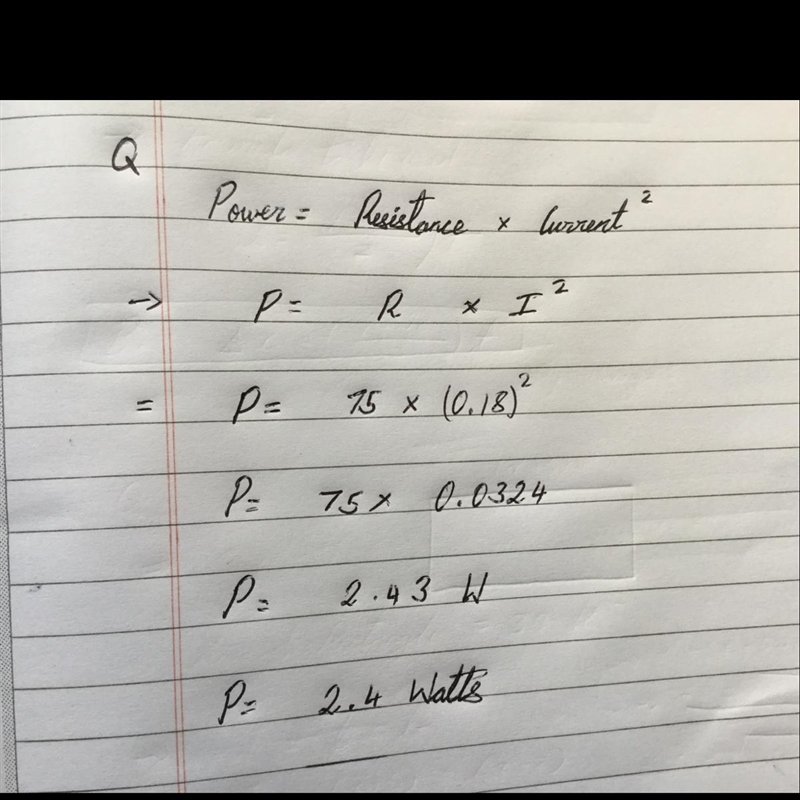 Q
Power = Resistance × Current²
→ P = R × I²
= P = 75 × (0.18)²
P = 75 × 0.0324
P = 2.43 W
P = 2.4 Watts